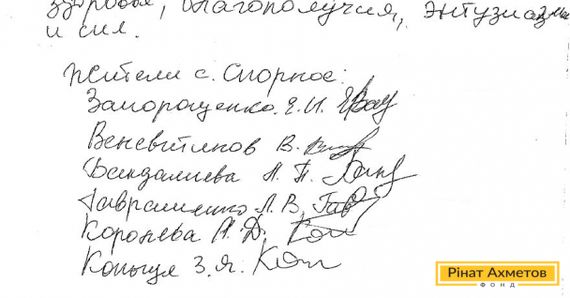 здоровья, благополучия, энтузиазма
и сил.
Жители с. Спорное:
Заморощенко Е.И.
Веневитинов В.
Бандалиева А. П.
Гавриленко Л. В.
Королева А. Д.
Копыця З. Я.
Рінат Ахметов
ФОНД